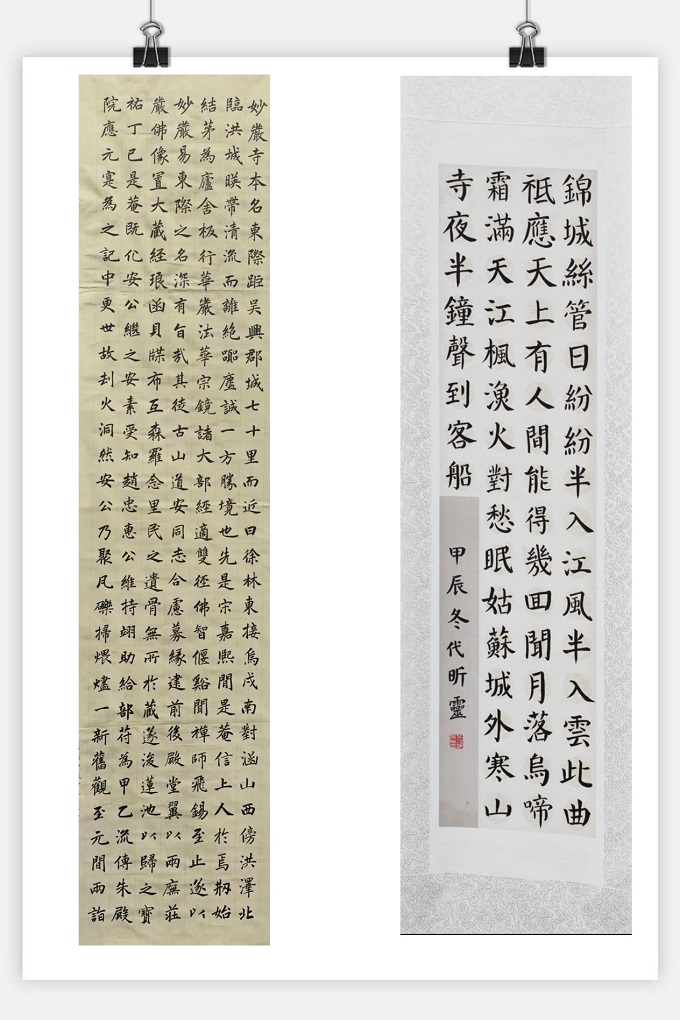 妙嚴寺本名東際距吳興郡城七十里而近曰徐林東接烏戍南對涵山西傍洪澤北
臨洪城暎帶清流而離絕塵誠一方勝境也先是宋嘉熙間是菴信上人於焉刱始
結茅為廬舍板行華嚴法華宗鏡諸大部經適雙徑佛智偃谿聞禪師飛錫至止遂以
妙嚴易東際之名深有旨哉其徒古山道安同志合慮募緣建前後殿堂翼以兩廡莊
嚴佛像置大藏經琅函貝牒布互森羅念里民之遺骨無所於藏遂浚蓮池以歸之寶
祐丁巳是菴既化安公繼之安素受知趙忠惠公維持翊助給部符為甲乙流傳朱殿
院應元寔為之記中更世故刦火洞然安公乃聚凡礫掃煨燼一新舊觀至元間兩詣
錦城絲管日紛紛半入江風半入雲此曲
祗應天上有人間能得幾回聞月落烏啼
霜滿天江楓漁火對愁眠姑蘇城外寒山
寺夜半鐘聲到客船
甲辰冬代昕靈